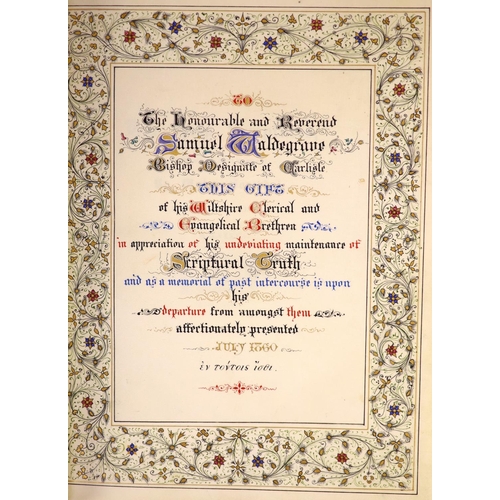 TO
The Honourable and Reverend
Samuel Waldegrave
Bishop Designate of Carlisle
THIS GIFT
of his Wiltshire Clerical and
Evangelical Brethren
in appreciation of his undeviating maintenance of
Scriptural Truth
and as a memorial of past intercourse is upon
his
departure from amongst them
affectionately presented
JULY 1860
ἐν τούτοις ἴσθι.